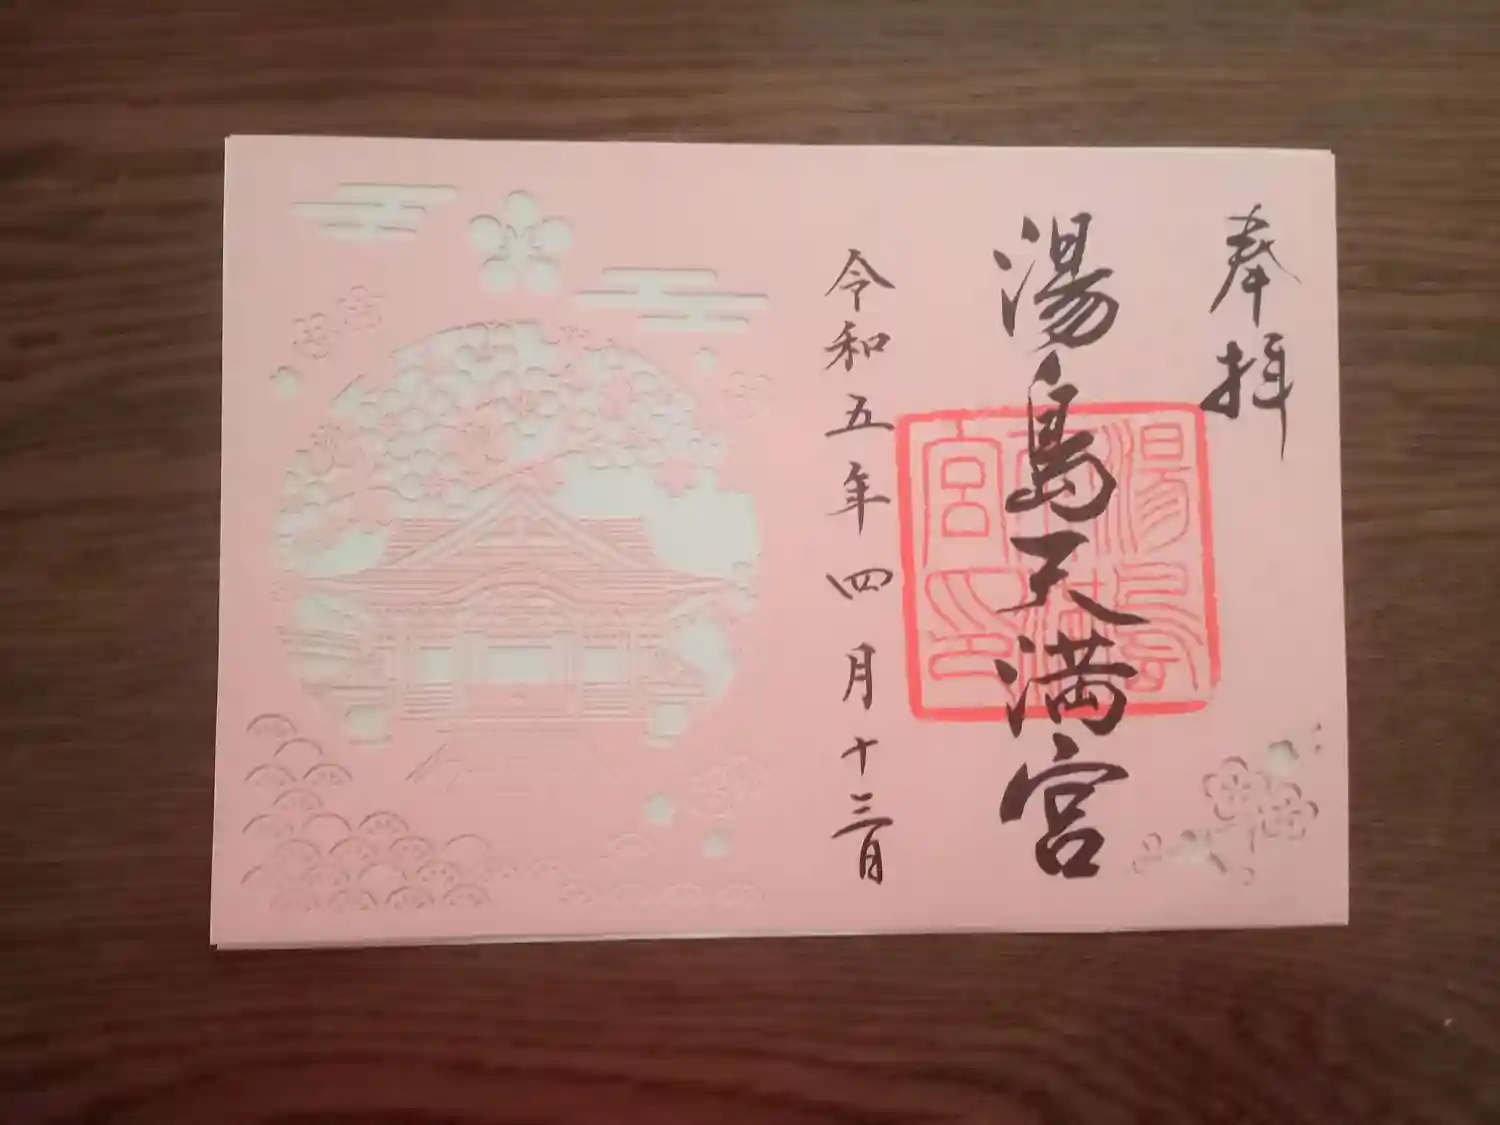 奉拝
湯島天満宮
湯島天満宮印
令和五年四月十三日